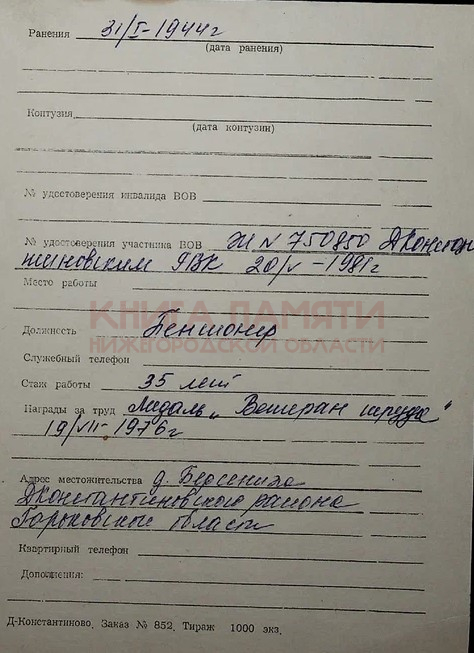 Ранения 31/I-1944г
(дата ранения)
Контузия
(дата контузии)
№ удостоверения инвалида ВОВ
№ удостоверения участника ВОВ Ж N 750850 ДКонстан
тиновским РВК 20/V-1981г
Место работы
КНИГА ПАМЯТИ
Должность Пенсионер
НИЖЕГОРОДСКОЙ ОБЛАСТИ
Служебный телефон
Стаж работы 35 лет
Награды за труд Медаль „Ветеран труда"
19/VII-1976г
Адрес местожительства д.
ДКонстантиновского района
Горьковской области
Квартирный телефон
Дополнения:
Д-Константиново, Заказ № 852. Тираж 1000 экз.